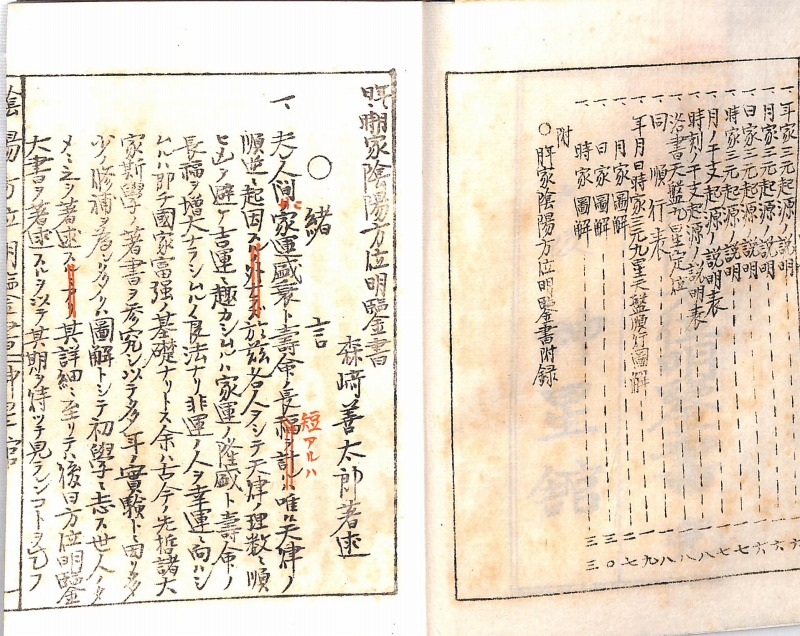 一、年家三元起源ノ説明 六
一、月家三元起源ノ説明 六
一、日家三元起源ノ説明 六
一、時家三元起源ノ説明 七
一、月ノ干支起源ノ説明表 七
一、時刻ノ干支起源ノ説明表 八
一、洛書天盤九星定位 八
一、同順行表 八
一、年月日時家三元九星天盤順行圖解 九
一、月家圖解 二七
一、日家圖解 三〇
一、時家圖解 三三
附
○年家陰陽方位明鑒書附録
年時家陰陽方位明鑒書
森﨑善太郎著述
○緒言
一、夫人間ノ家運盛衰ト壽命ノ長短アルハ唯ニ天律ノ
順逆ニ起因 於茲各人ヲシテ天律ノ理数ニ順
ヒ凶ヲ避ケ吉運ニ趣カシムルハ家運ノ隆盛ト壽命ノ
長福ヲ増大ナラシムルノ良法ナリ非運ノ人ヲ幸運ニ向ハシ
ムルハ即チ國家富强ノ基礎ナリトス余ハ古今ノ先哲諸大
家斯學ノ著書ヲ考究シ以テ多年ノ實驗ト因リ
少ノ修補ヲ 圖解トシテ初學ニ志ス世人ノタ
メニ之ヲ著述ス 其詳細ニ至リテハ後日方位明鑒
大書ヲ著述スルヲ以テ其期ヲ待ツテ見ランコトヲ乞フ
陰陽方位明鑒書